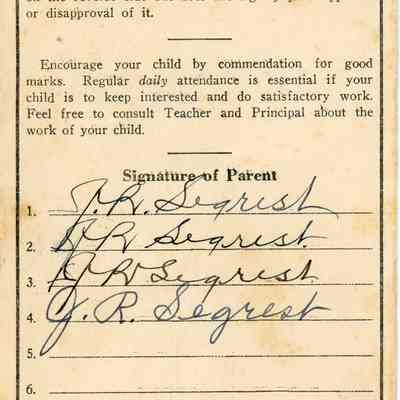 or disapproval of it.
Encourage your child by commendation for good
marks. Regular daily attendance is essential if your
child is to keep interested and do satisfactory work.
Feel free to consult Teacher and Principal about the
work of your child.
Signature of Parent
1. J. R. Segrest
2. J R Segrest.
3. J R Segrest.
4. J. R. Segrest
5.
6.